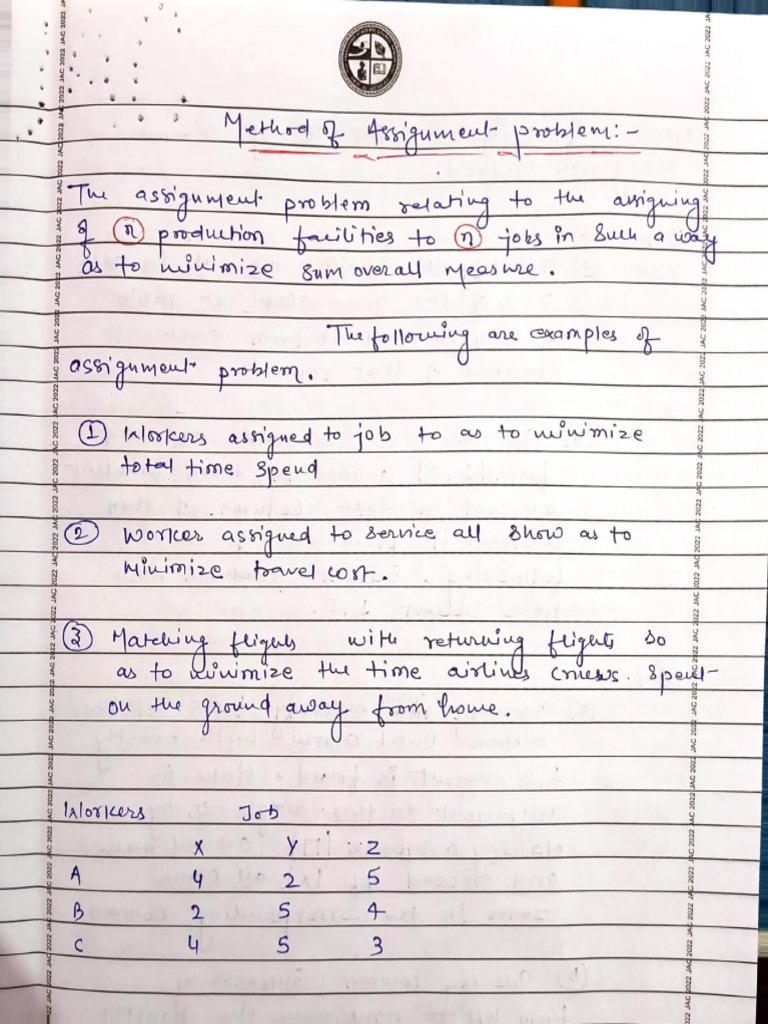 Method of Assignment problem:-
The assignment problem relating to the assigning
of n production facilities to n jobs in such a way
as to minimize sum overall measure.
The following are examples of
assignment problem.
1 Workers assigned to job to as to minimize
total time spend
2 Worker assigned to service all show as to
minimize travel cost.
3 Matching flights with returning flights so
as to minimize the time airlines crews. spent
on the ground away from home.
Workers Job
X Y Z
A 4 2 5
B 2 5 4
C 4 5 3
JAC 2022 JAC 2022 JAC 2022 JAC 2022 JAC 2022 JAC 2022